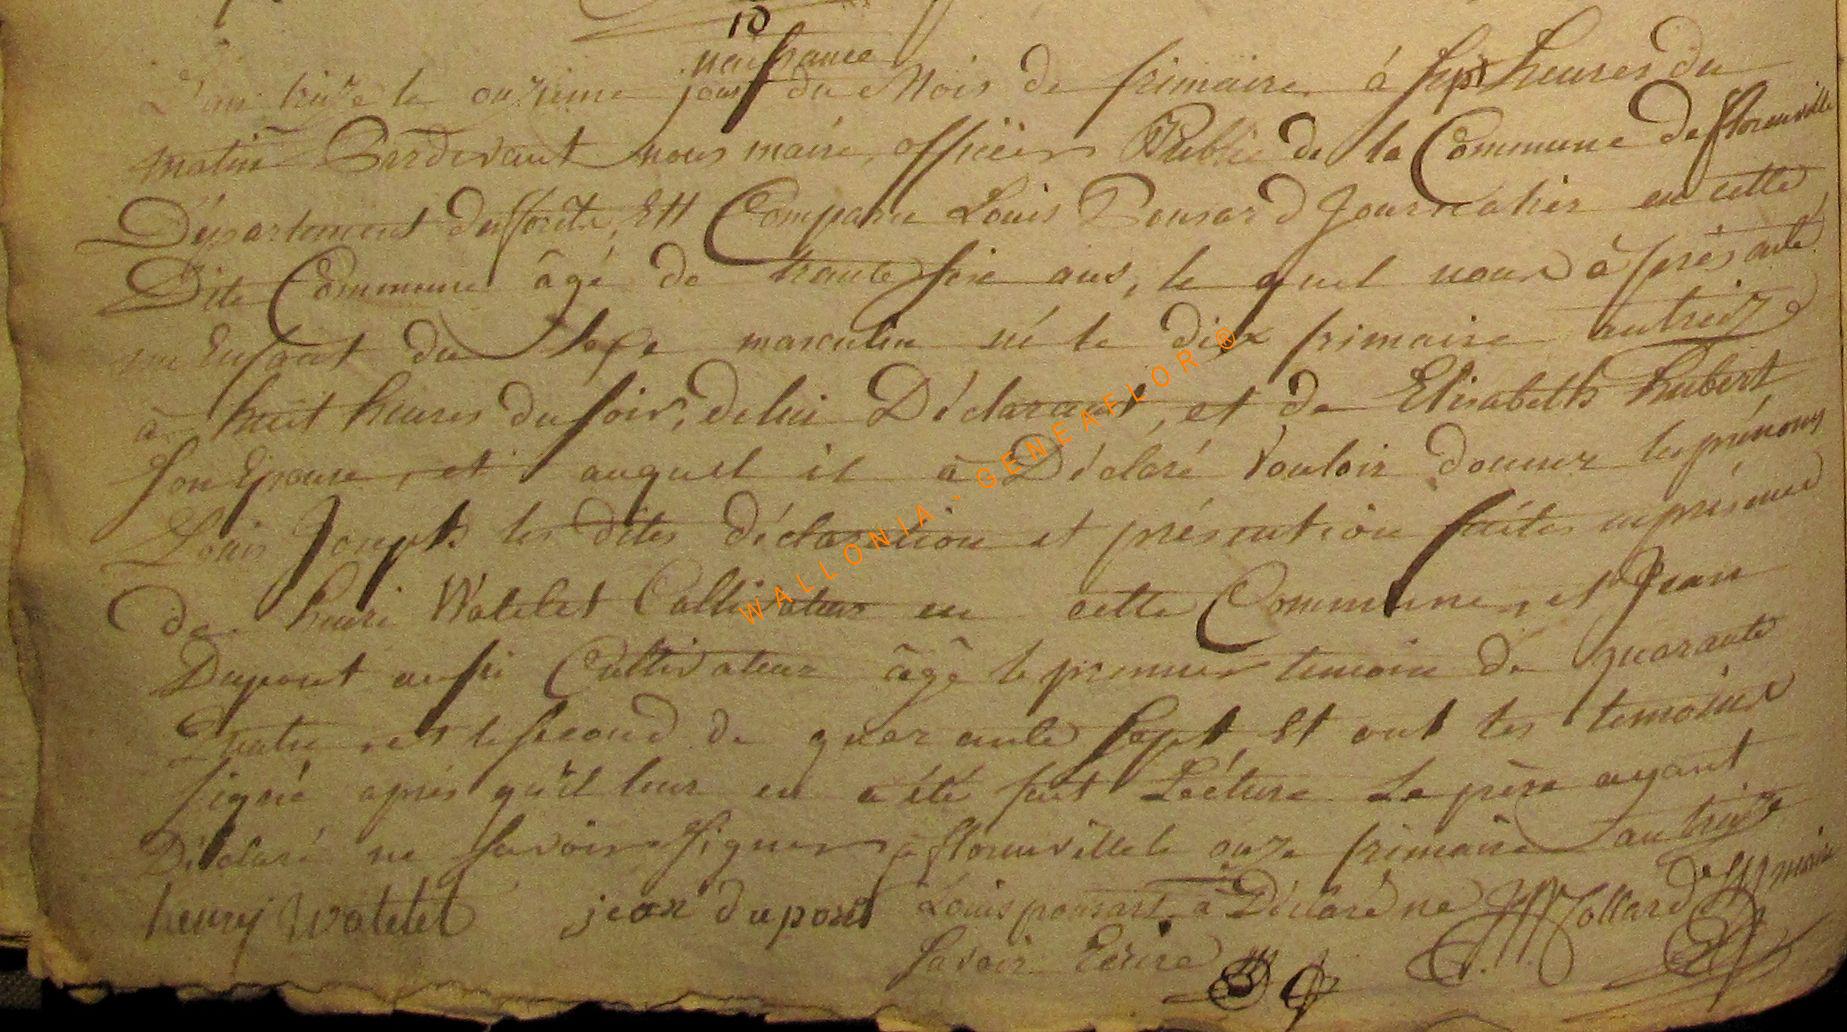 10
naissance
L'an treize le onzieme jour du Mois de frimaire à sept heures du
matin Pardevant nous maire, officier Public de la Commune de florenville
Département des forêts, Est Comparu Louis Ponsard Journalier en cette
Dite Commune âgé de trante six ans, le quel nous à présanté
un Enfant du sexe masculin né le dix frimaire an treize
à huit heures du soir, de lui Déclarant, et de Elisabeth hubert
son Epouse, et auquel il à Déclaré Vouloir donner les prénoms
Louis Joseph les dites déclaration et présentation faites en présence
de henri Watelet Cultivateur en cette Commune, et Jean
Dupont aussi Cultivateur âgé le premier temoin de quarante
quatre, et le second de quarante sept Et ont les temoins
signé après qu'il leur en a été fait Lécture Le père ayant
Déclaré ne savoir signer à florenville le onze frimaire an treize
henry Watelet jean dupont Louis ponsart à Déclaré ne Mollard maire
savoir Ecrire
WALLONIA-GENEAFLOR®